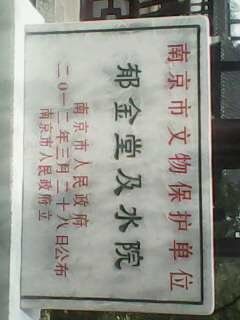 南京市文物保护单位
郁金堂及水院
南京市人民政府
二〇一二年三月二十八日公布
南京市人民政府立